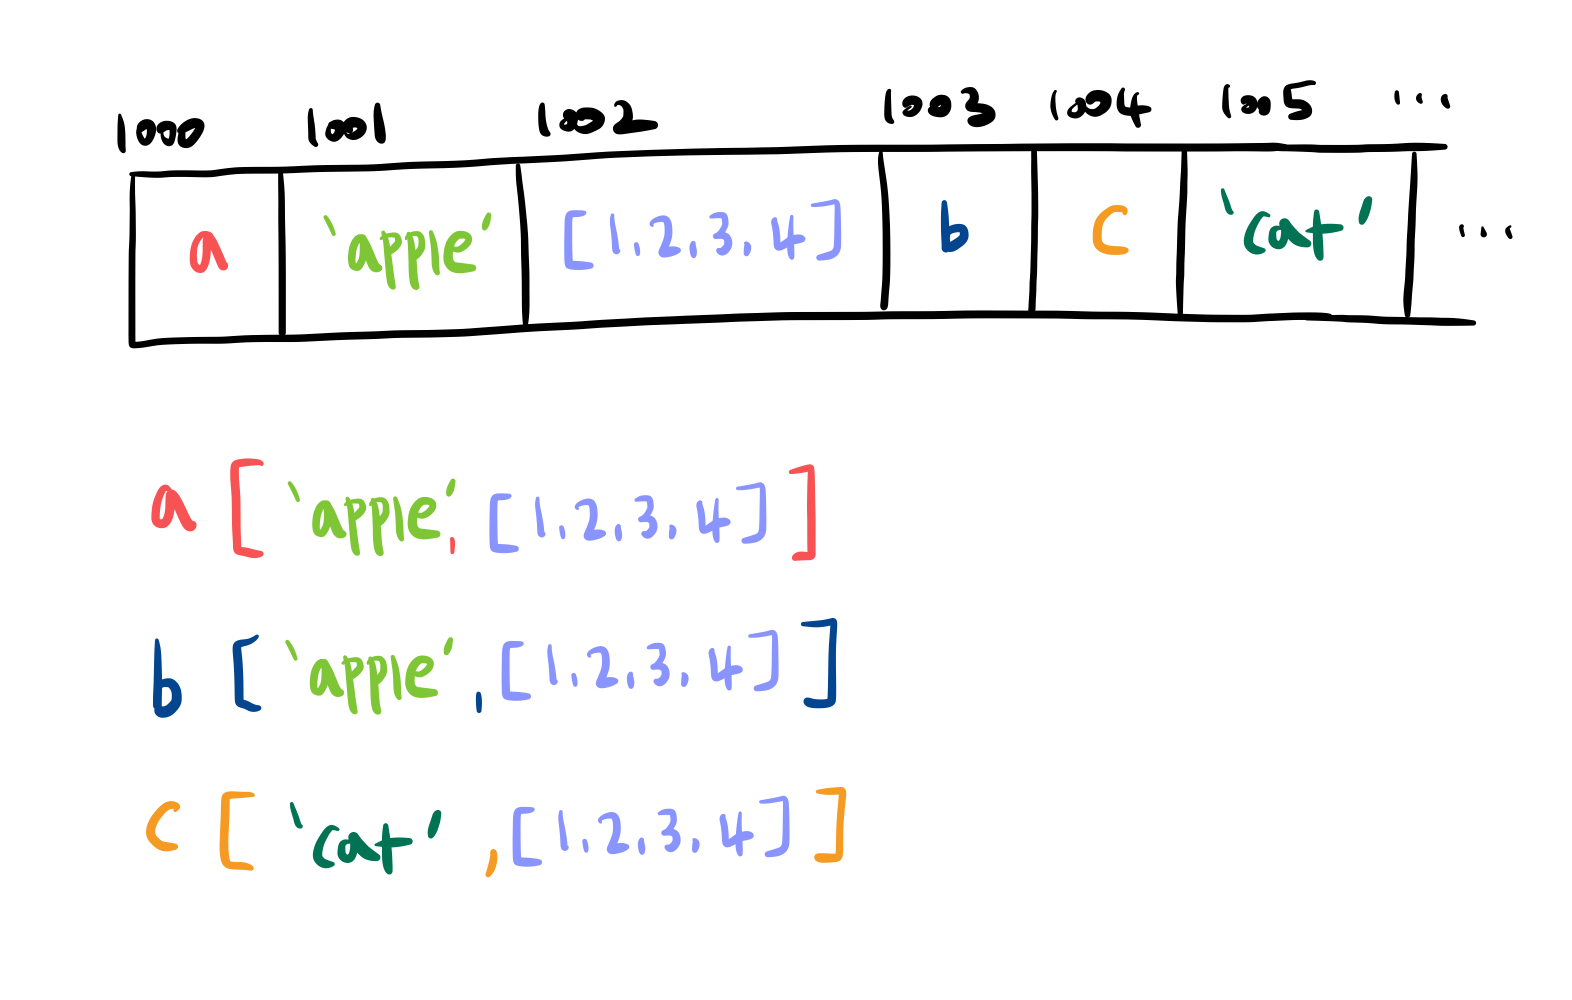 1000 1001 1002 1003 1004 1005 ...
a 'apple' [1,2,3,4] b c 'cat' ...
a ['apple', [1,2,3,4]]
b ['apple', [1,2,3,4]]
c ['cat', [1,2,3,4]]